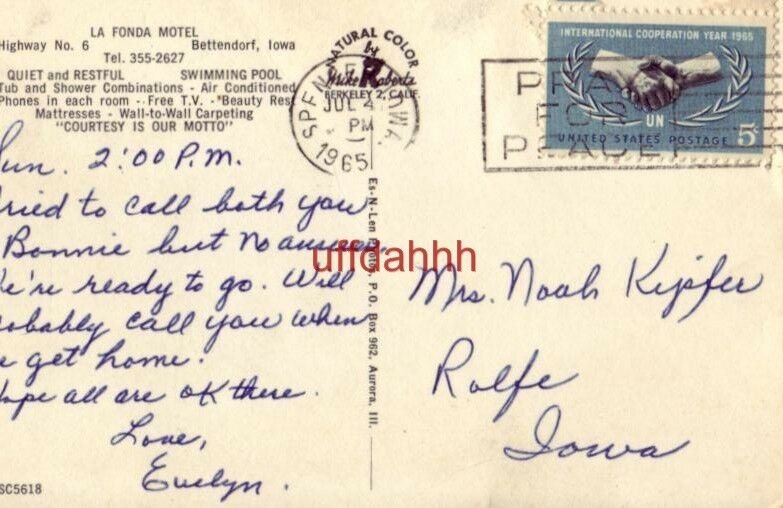 LA FONDA MOTEL
Highway No. 6 Bettendorf, Iowa
Tel. 355-2627
QUIET and RESTFUL SWIMMING POOL
Tub and Shower Combinations - Air Conditioned
Phones in each room - Free T.V. - "Beauty Rest
Mattresses - Wall-to-Wall Carpeting
"COURTESY IS OUR MOTTO"
Sun. 2:00 P.M.
Tried to call both you
Bonnie but no answer.
We're ready to go. Will
probably call you when
we get home.
Hope all are OK there.
Love,
Evelyn.
SC5618
NATURAL COLOR
by
Mike Roberts
BERKELEY 2, CALIF.
SPENCER, IOWA
JUL 4
PM
1965
Es-N-Len Photos, P.O. Box 962, Aurora, Ill.
uffdahhh
INTERNATIONAL COOPERATION YEAR 1965
UN
UNITED STATES POSTAGE 5¢
PRAY
FOR
PEACE
Mrs. Noah Kipfer
Rolfe
Iowa